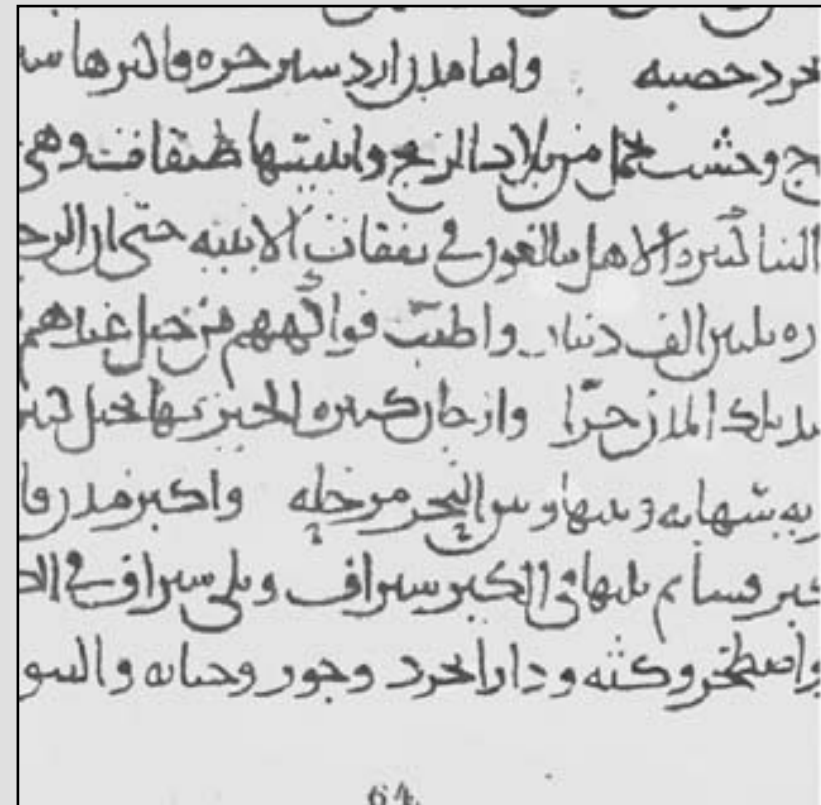 نجرد خصبه واما مدن اردسير خره فاكبرها
ج وخشب يحمل من بلاد الزنج وابنيتها طبقات وهي
البنا كثيره الاهل يبالغون في نفقات الابنيه حتى ان الرجـ
ره ثلثين الف دينار واطيب فواكههم من جبل
تلك المدن حرّا وارجان كبيره الخيز بها نخل كثير
وبينها وبين البحر مرحله واكبر مدن فا
كبر فسا ثم يليها في الكبر سيراف ويلي سيراف في الكـ
واصطخر وكثه ودارابجرد وجور وجنابه والنو
64